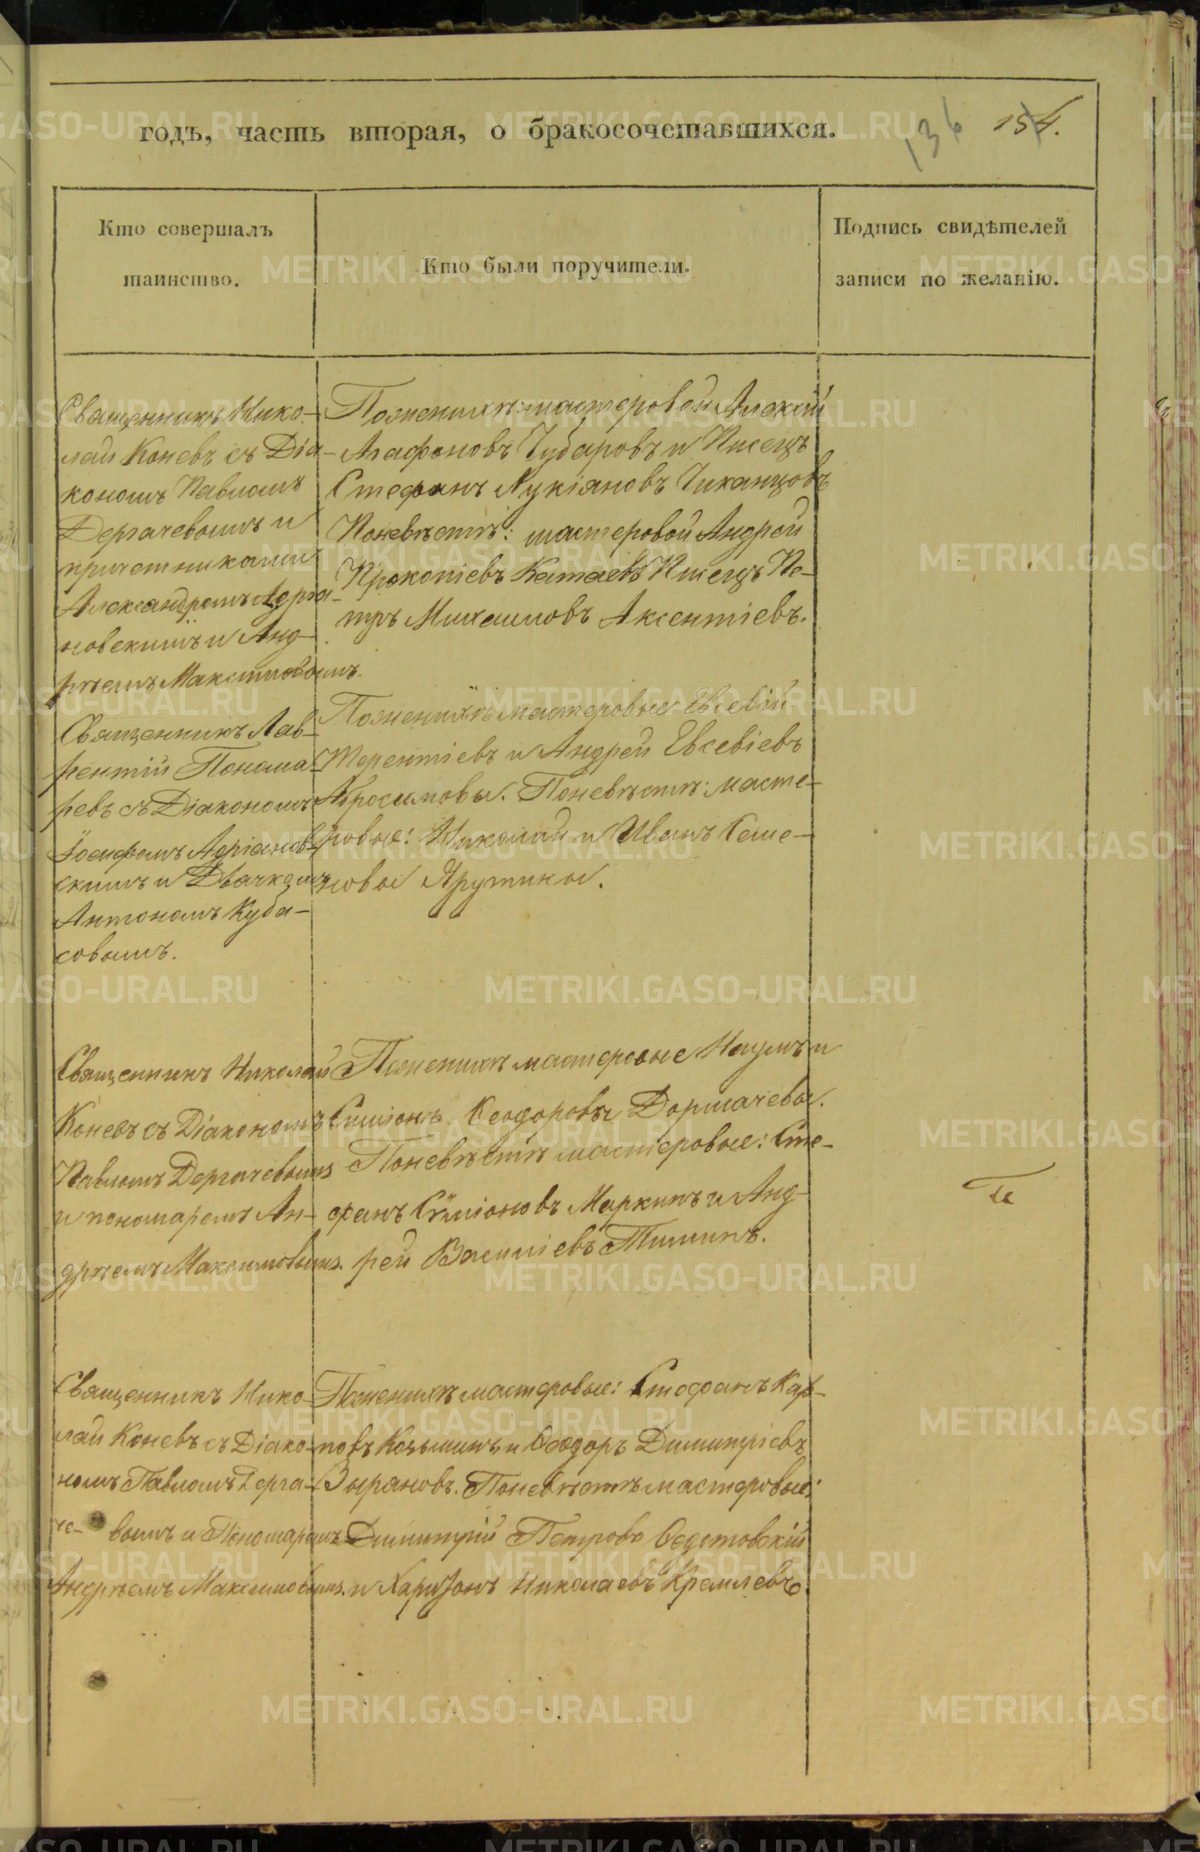 годъ, часть вторая, о бракосочетавшихся.
136 154.
Кто совершалъ
таинство.
Кто были поручители.
Подпись свидѣтелей
записи по желанію.
Священникъ Нико-
лай Коневъ съ Діа-
кономъ Павломъ
Дергачевымъ и
причетниками
Александромъ
новскимъ и Анд-
рѣемъ Максимовымъ.
По женихѣ: мастеровой Алексѣй
Агафоновъ Чубаровъ и Писецъ
Стефанъ Лукіяновъ Чиканцовъ
По невѣстѣ: мастеровой Андрей
Прокопіевъ Катаевъ Писецъ Пе-
тръ Михаиловъ Аксентіевъ.
Священникъ Лав-
рентій Понома-
ревъ съ Діакономъ
Іосифомъ Адріанов-
скимъ и Дьячкомъ
Антономъ Куба-
совымъ.
По женихѣ мастеровые Евсевій
Терентіевъ и Андрей Евсевіевъ
Абросимовы. По невѣстѣ: масте-
ровые: Николай и Иванъ Семе-
новы Ярутины.
Священникъ Николай
Коневъ съ Діакономъ
Павломъ Дергачевымъ
и пономаремъ Ан-
дрѣемъ Максимовымъ.
По женихѣ мастеровые Наумъ и
Симіонъ Ѳеодоровы Дормачевы.
По невѣстѣ мастеровые: Сте-
фанъ Сѵміоновъ Маркинъ и Анд-
рей Василіевъ Тишинъ.
Священникъ Нико-
лай Коневъ съ Діако-
номъ Павломъ Дерга-
че- вымъ и Пономаремъ
Андрѣемъ Максимовымъ.
По женихѣ мастеровые: Стефанъ Кар-
повъ Козьминъ и Ѳеодоръ Димитріевъ
Зыряновъ. По невѣстѣ мастеровые:
Димитрій Петровъ Ѳедотовскій
и Харитонъ Николаевъ Кремлевъ.
METRIKI.GASO-URAL.RU